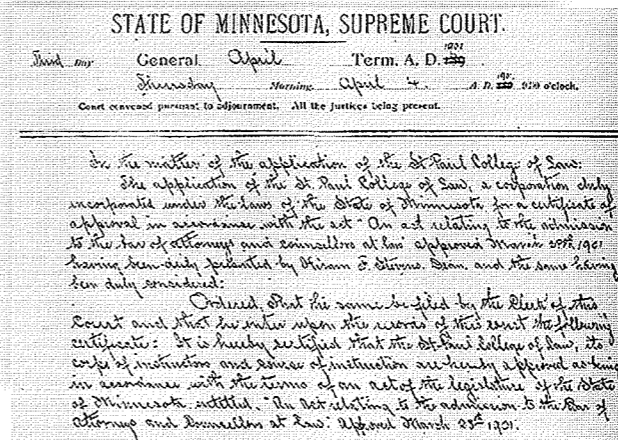 STATE OF MINNESOTA, SUPREME COURT.
Third Day General April Term. A. D. 1901
Thursday Morning, April 4 A. D. 190 o'clock.
Court convened pursuant to adjournment. All the Justices being present.
In the matter of the application of the St. Paul College of Law:
The application of the St. Paul College of Law, a corporation duly
incorporated under the laws of the State of Minnesota for a certificate of
approval in accordance with the act "An act relating to the admission
to the bar of attorneys and counsellors at law" approved March 1901
having been duly presented by Hiram F. Stevens, Dean, and the same having
been duly considered:
Ordered, That the same be filed by the Clerk of this
Court and that he enter upon the records of this court the following
certificate: It is hereby certified that the St. Paul College of Law, its
corps of instructors and course of instruction are hereby approved as being
in accordance with the terms of an act of the legislature of the State
of Minnesota entitled, "An Act relating to the admission to the Bar of
Attorneys and Councellors at Law" Approved March 1901.